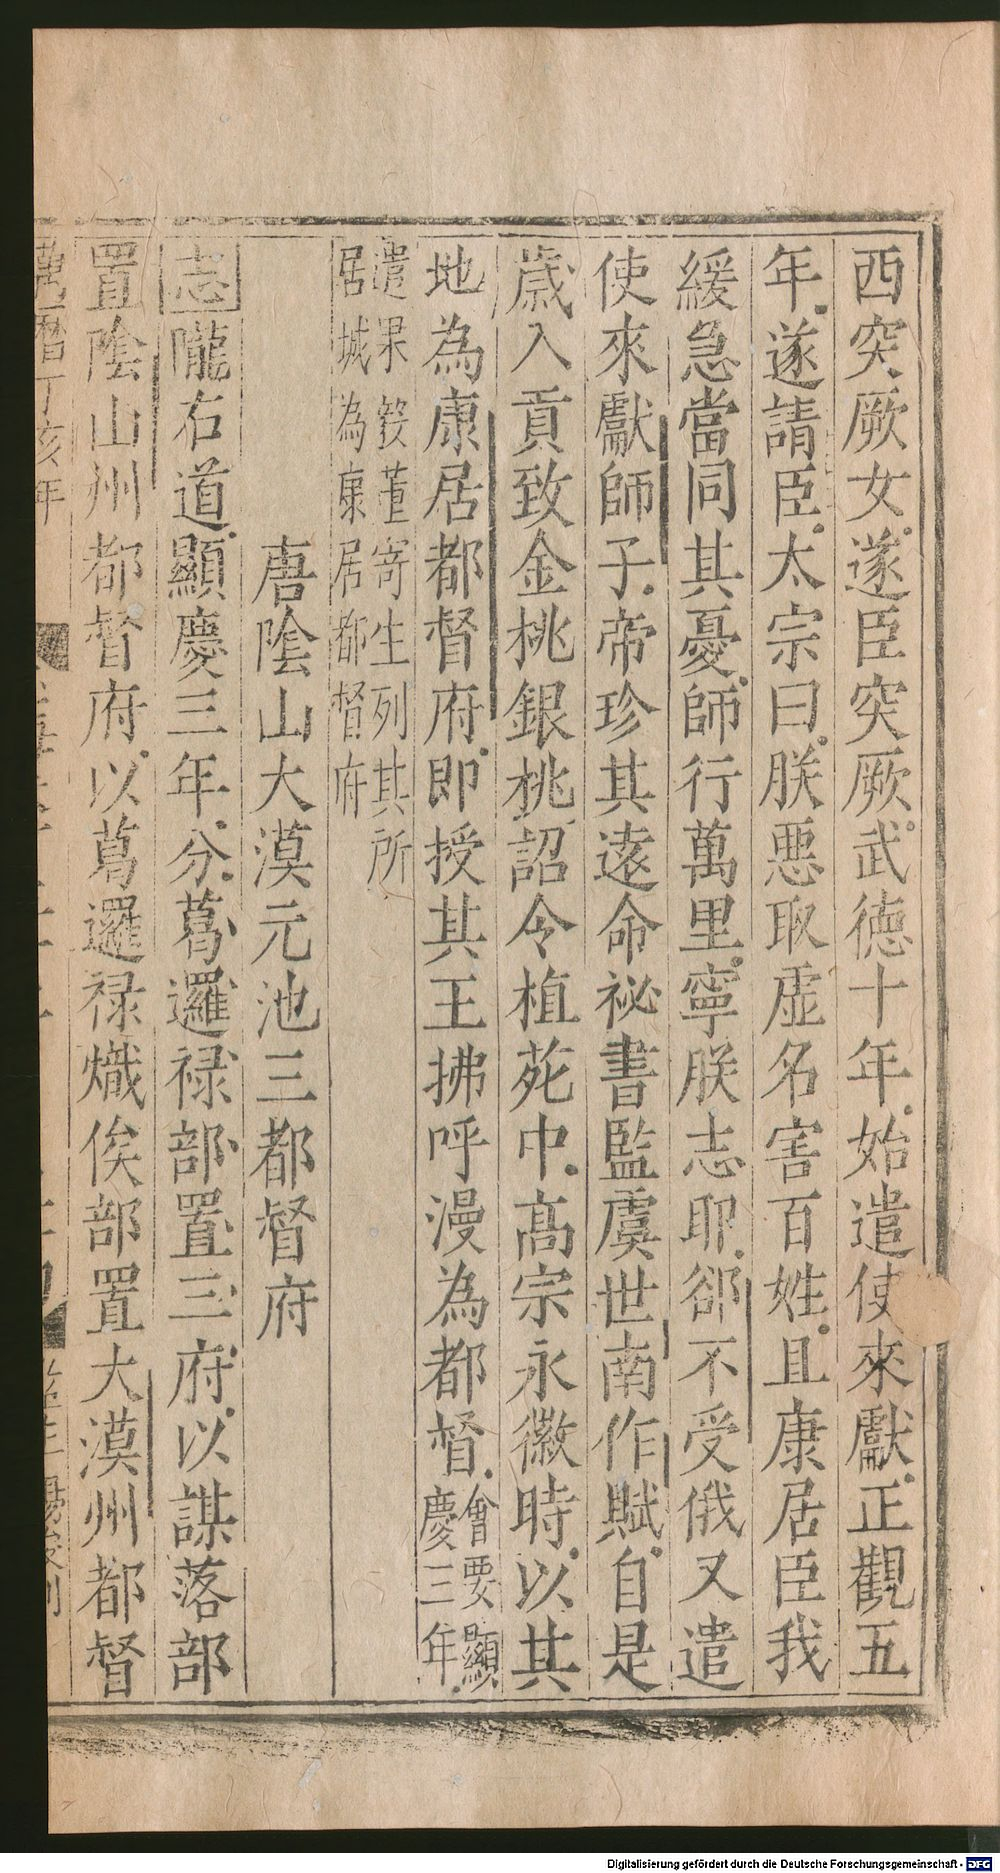 西突厥女遂臣突厥武德十年始遣使來獻正觀五
年遂請臣太宗曰朕惡取虛名害百姓且康居臣我
緩急當同其憂師行萬里寧朕志耶郤不受俄又遣
使來獻師子帝珍其遠命祕書監虞世南作賦自是
歲入貢致金桃銀桃詔令植苑中高宗永徽時以其
地為康居都督府即授其王拂呼漫為都督會要顯慶三年
遣果毅董寄生列其所
居城為康居都督府
唐陰山大漠元池三都督府
志隴右道顯慶三年分葛邏祿部置三府以謀落部
置陰山州都督府以葛邏祿熾俟部置大漠州都督
萬曆丁亥年
Digitalisierung gefördert durch die Deutsche Forschungsgemeinschaft - DFG